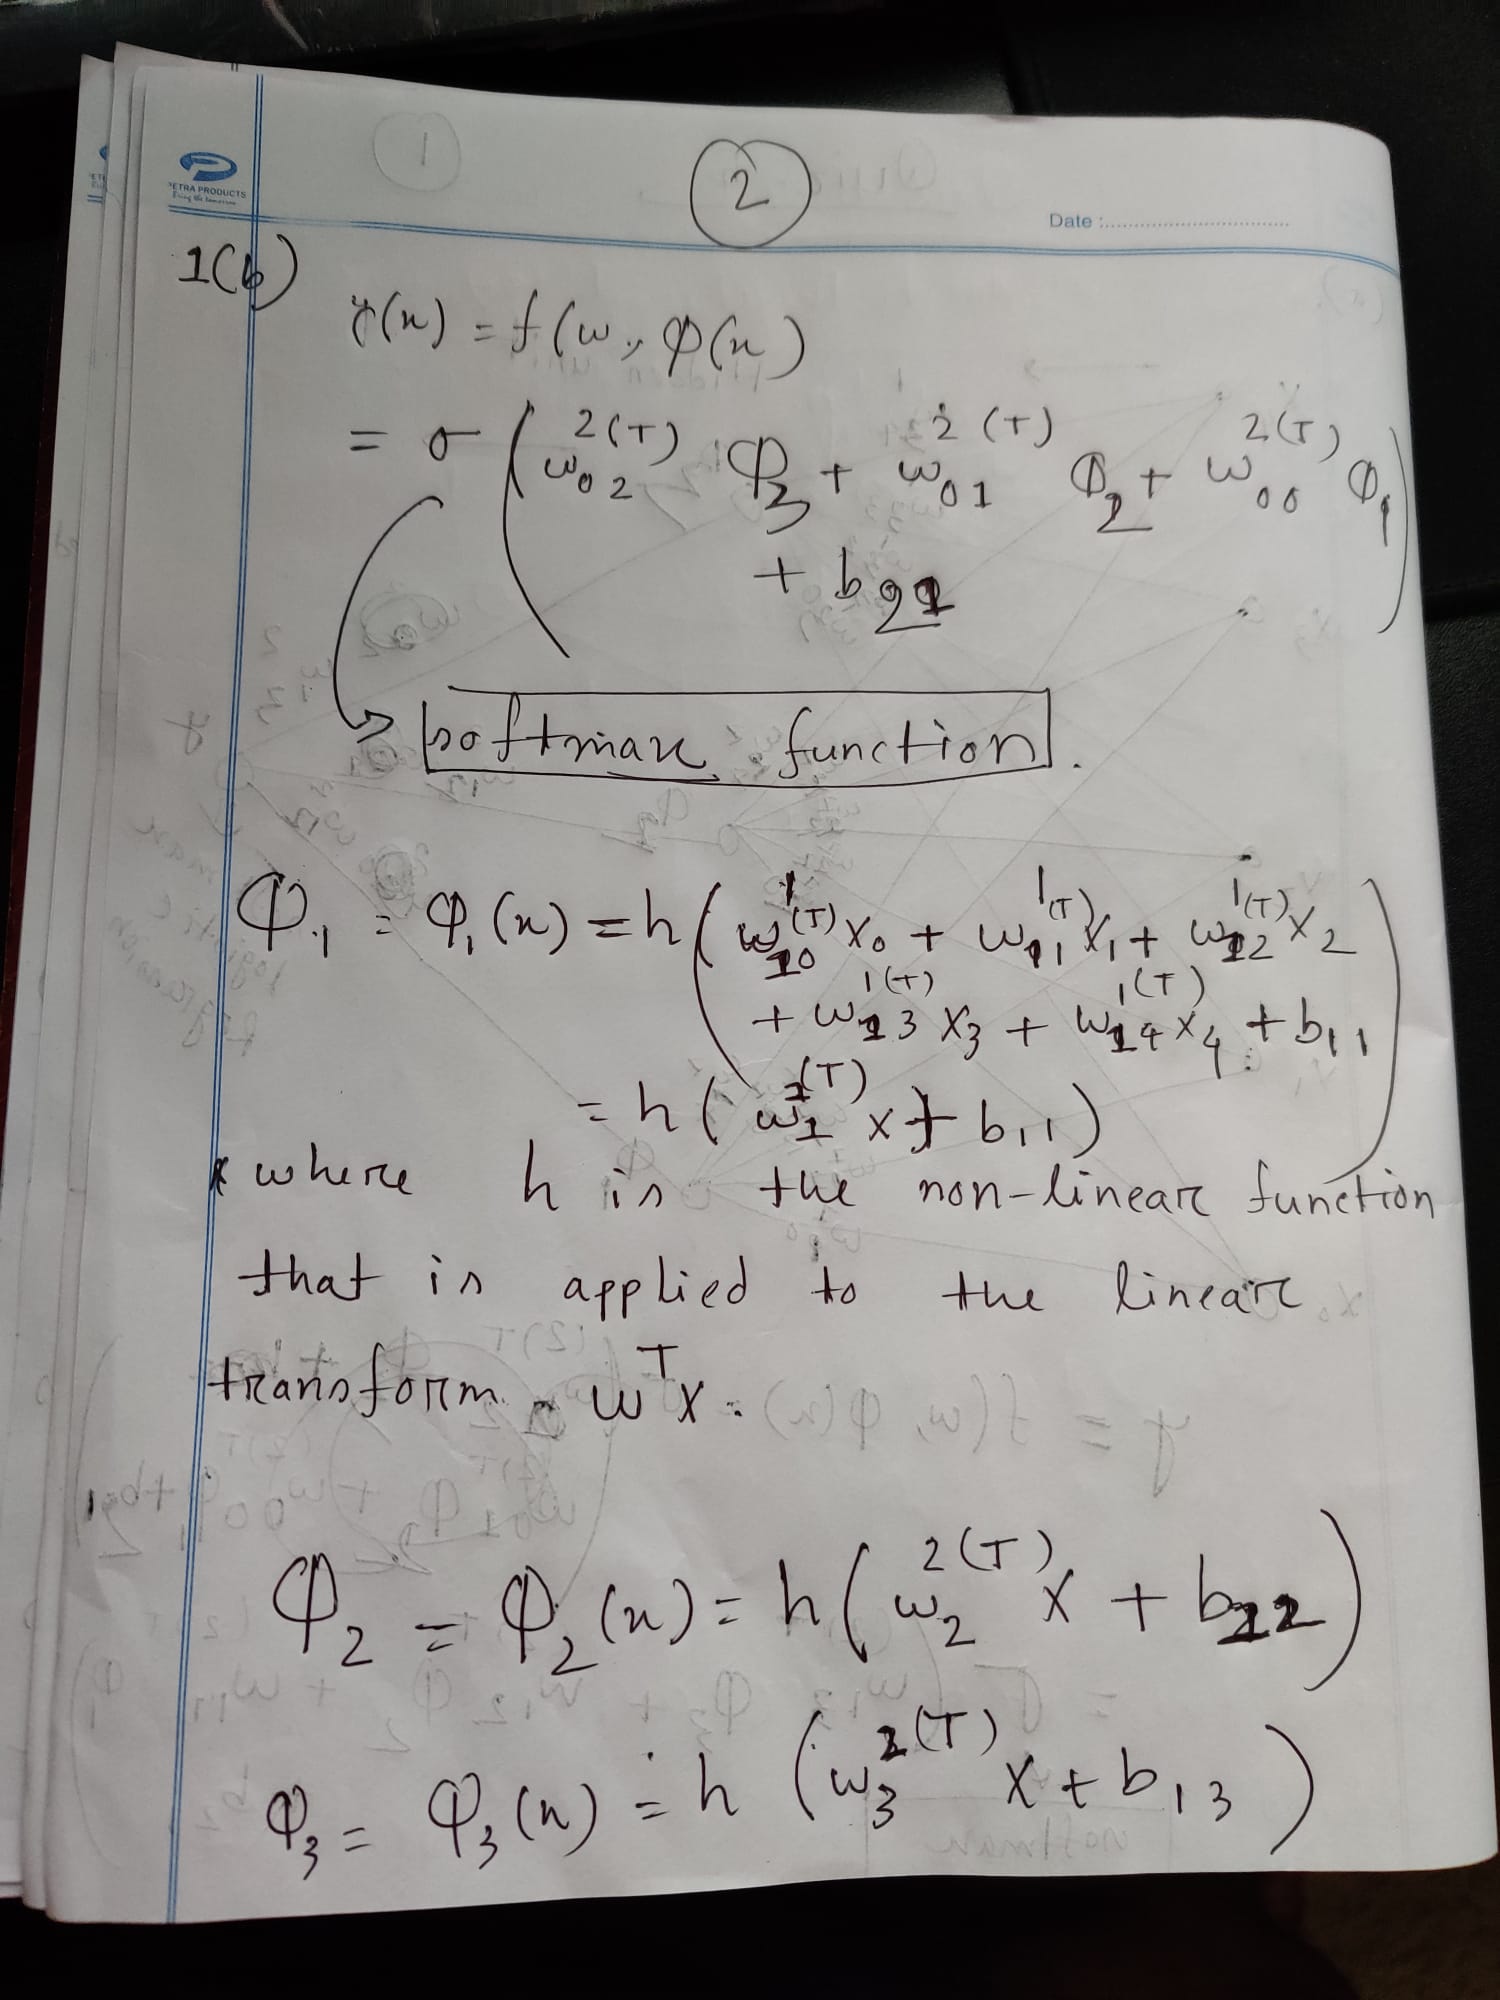 PETRA PRODUCTS
Bring the tomorrow
1
2
Date :
1(b)
y(x) = f(w, φ(x)
= σ ( w₀₂^2(T) φ₃ + w₀₁^2(T) φ₂ + w₀₀^2(T) φ₁
+ b₂₁ )
softmax function.
φ₁ = φ₁(x) = h ( w₁₀^1(T) x₀ + w₁₁^1(T) x₁ + w₁₂^1(T) x₂
+ w₁₃^1(T) x₃ + w₁₄^1(T) x₄ + b₁₁ )
= h ( w₁^1(T) x + b₁₁ )
where h is the non-linear function
that is applied to the linear
transform w^T x.
φ₂ = φ₂(x) = h ( w₂^2(T) x + b₁₂ )
φ₃ = φ₃(x) = h ( w₃^2(T) x + b₁₃ )